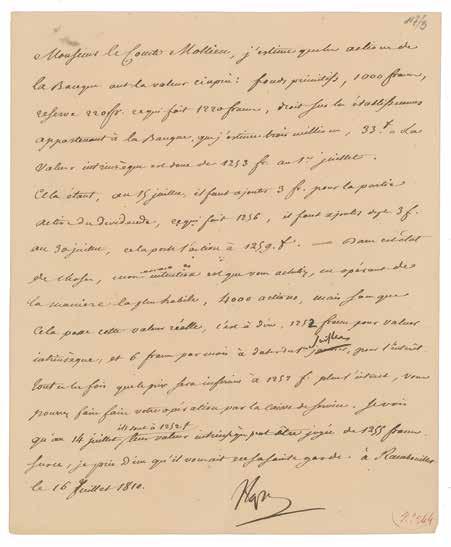 Monsieur le Comte Mollien, j'estime que les actions de
la Banque ont la valeur ci après: fonds primitifs, 1000 francs,
réserve 220 fr. ce qui fait 1220 francs, droit sur les établissemens
appartenant à la Banque, que j'estime trois millions, 33 f. La
valeur intrinsèque est donc de 1253 fr. au 1er juillet.
Cela étant, au 15 juillet, il faut ajouter 3 fr. pour la partie
active du dividende, ce qui fait 1256, il faut ajouter 3 f.
au 30 juillet, cela porte l'action à 1259. f. — Dans cet état
de choses, mon intention est que vous achetiez, en opérant de
la manière la plus habile, 4000 actions, mais sans que
cela passe cette valeur réelle, c'est à dire, 1252 francs pour valeur
intrinsèque, et 6 francs par mois à dater du 1er juillet, pour l'intérêt
Toutes les fois que le prix sera inférieur à 1252 f. plus l'intérêt, vous
pouvez faire votre opération par la caisse de service. Je vois
qu'au 14 juillet, leur valeur intrinsèque peut être jugée de 1255 francs
Sur ce, je prie Dieu qu'il vous ait en sa sainte garde. à Rambouillet
le 16 Juillet 1810.
Np